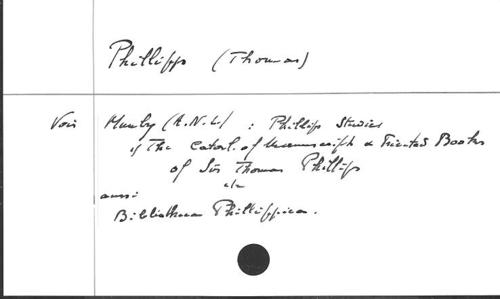 Phillipps (Thomas)
Voir Munby (A.N.L.) : Phillipps Studies
of The Catal. of Manuscripts & Printed Books
of Sir Thomas Phillipps
etc
aussi
Bibliotheca Phillippica.